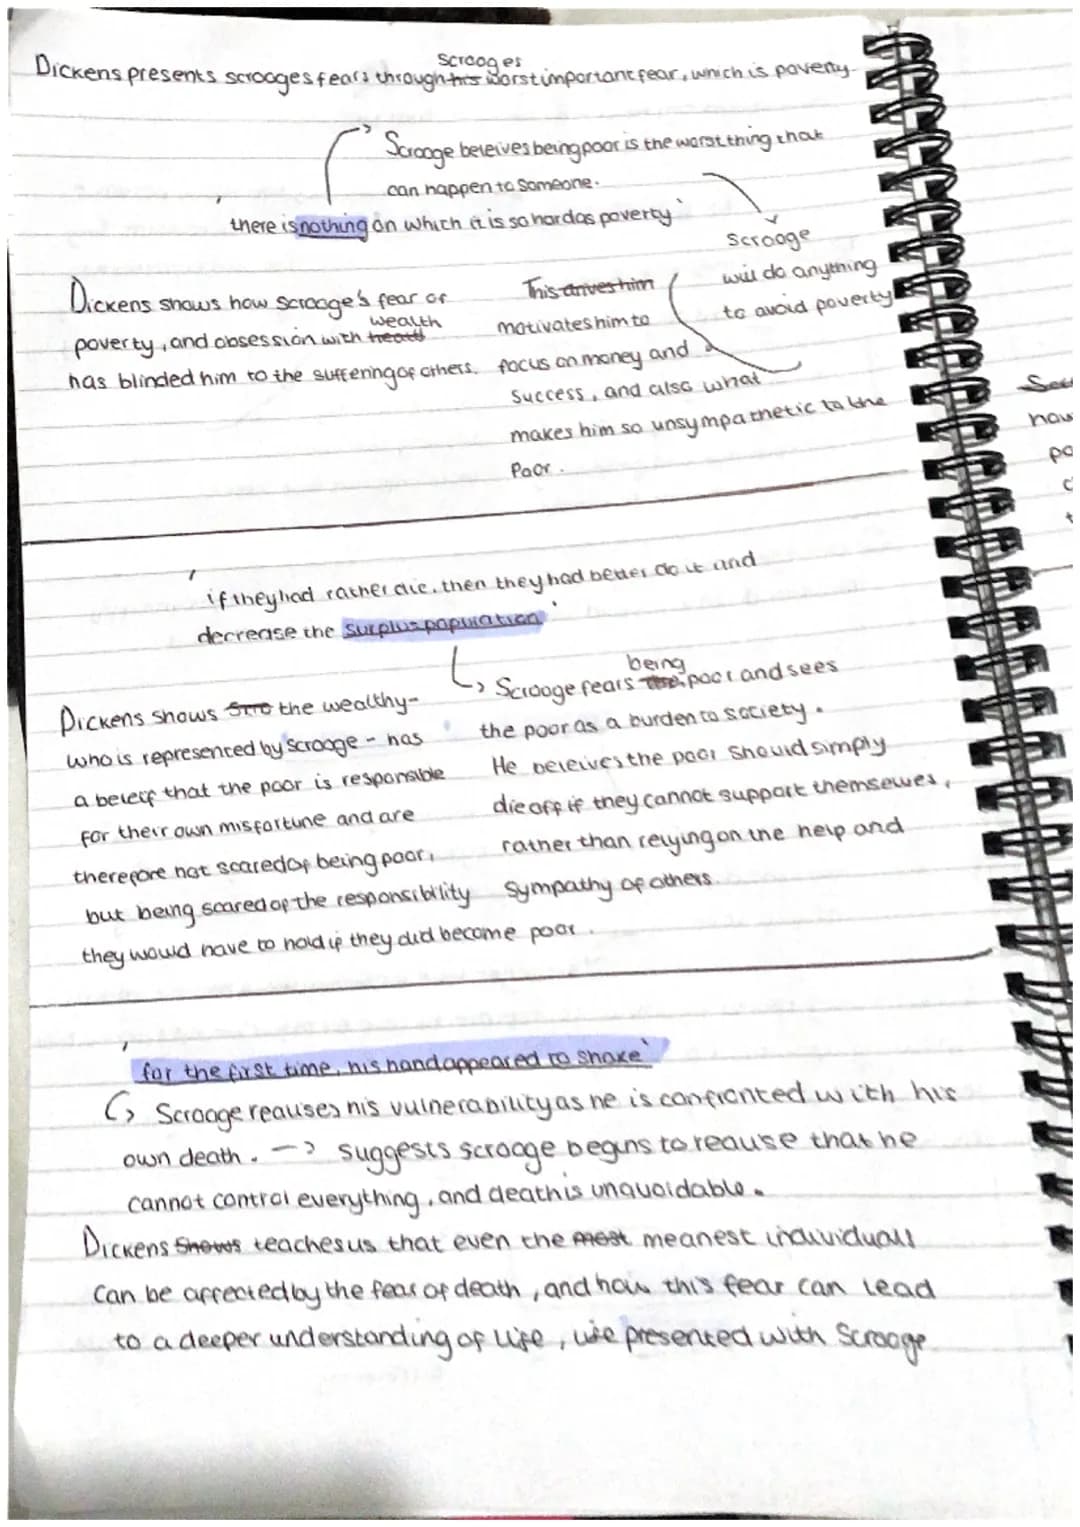 Scrooges
Dickens presents scrooges fears through his worst important fear, which is poverty.
Scrooge beleives being poor is the worst thing that
can happen to someone.
'there is nothing on which it is so hard as poverty'
Scrooge
will do anything
to avoid poverty
Dickens shows how scrooge's fear of
wealth
poverty, and obsession with
has blinded him to the suffering of others.
This drives him
motivates him to
focus on money and
success, and also what
makes him so unsympathetic to the
Poor.
'if they had rather die, then they had better do it and
decrease the surplus population'
being
Scrooge fears poor and sees
the poor as a burden to society.
He beleives the poor should simply
die off if they cannot support themselves,
rather than relying on the help and
sympathy of others.
Dickens shows the wealthy-
who is represented by scrooge - has
a beleif that the poor is responsible
for their own misfortune and are
therefore not scared of being poor,
but being scared of the responsibility
they would have to hold if they did become poor.
'for the first time, his hand appeared to shake'
Scrooge realises his vulnerability as he is confronted with his
own death. -> suggests scrooge begins to realise that he
cannot control everything, and death is unavoidable.
Dickens shows teaches us that even the most meanest individuals
can be affected by the fear of death, and how this fear can lead
to a deeper understanding of life, like presented with Scrooge
how